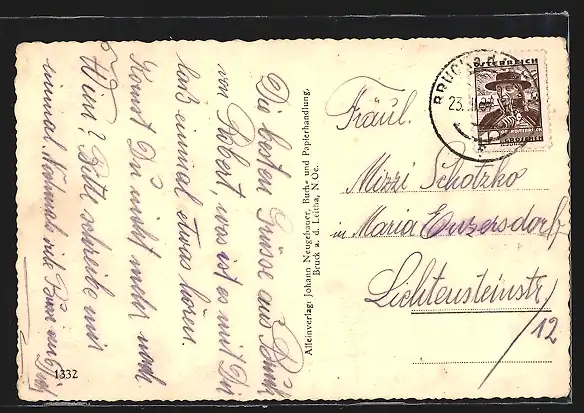 Die besten Grüsse aus Bruck
von Robert, was ist es mit Dir
laß einmal etwas hören.
Komst Du nicht mehr nach
Wien? Bitte schreibe mir
einmal. Nochmals viele
1332
Alleinverlag: Johann Neugebauer, Buch- und Papierhandlung,
Bruck a. d. Leitha, N.Oe.
BRUCK
23.
ÖSTERREICH
GROSCHEN
Fräul.
Mizzi Scholzko
in Maria Enzersdorf
Lichtensteinstr
12